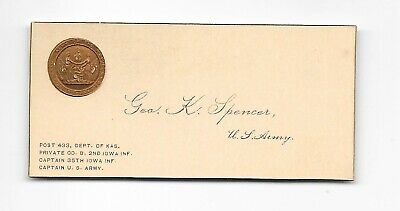 Geo. K. Spencer,
U.S. Army.
POST 433, DEPT. OF KAS.
PRIVATE CO. B. 2ND IOWA INF.
CAPTAIN 35TH IOWA INF.
CAPTAIN U. S. ARMY.